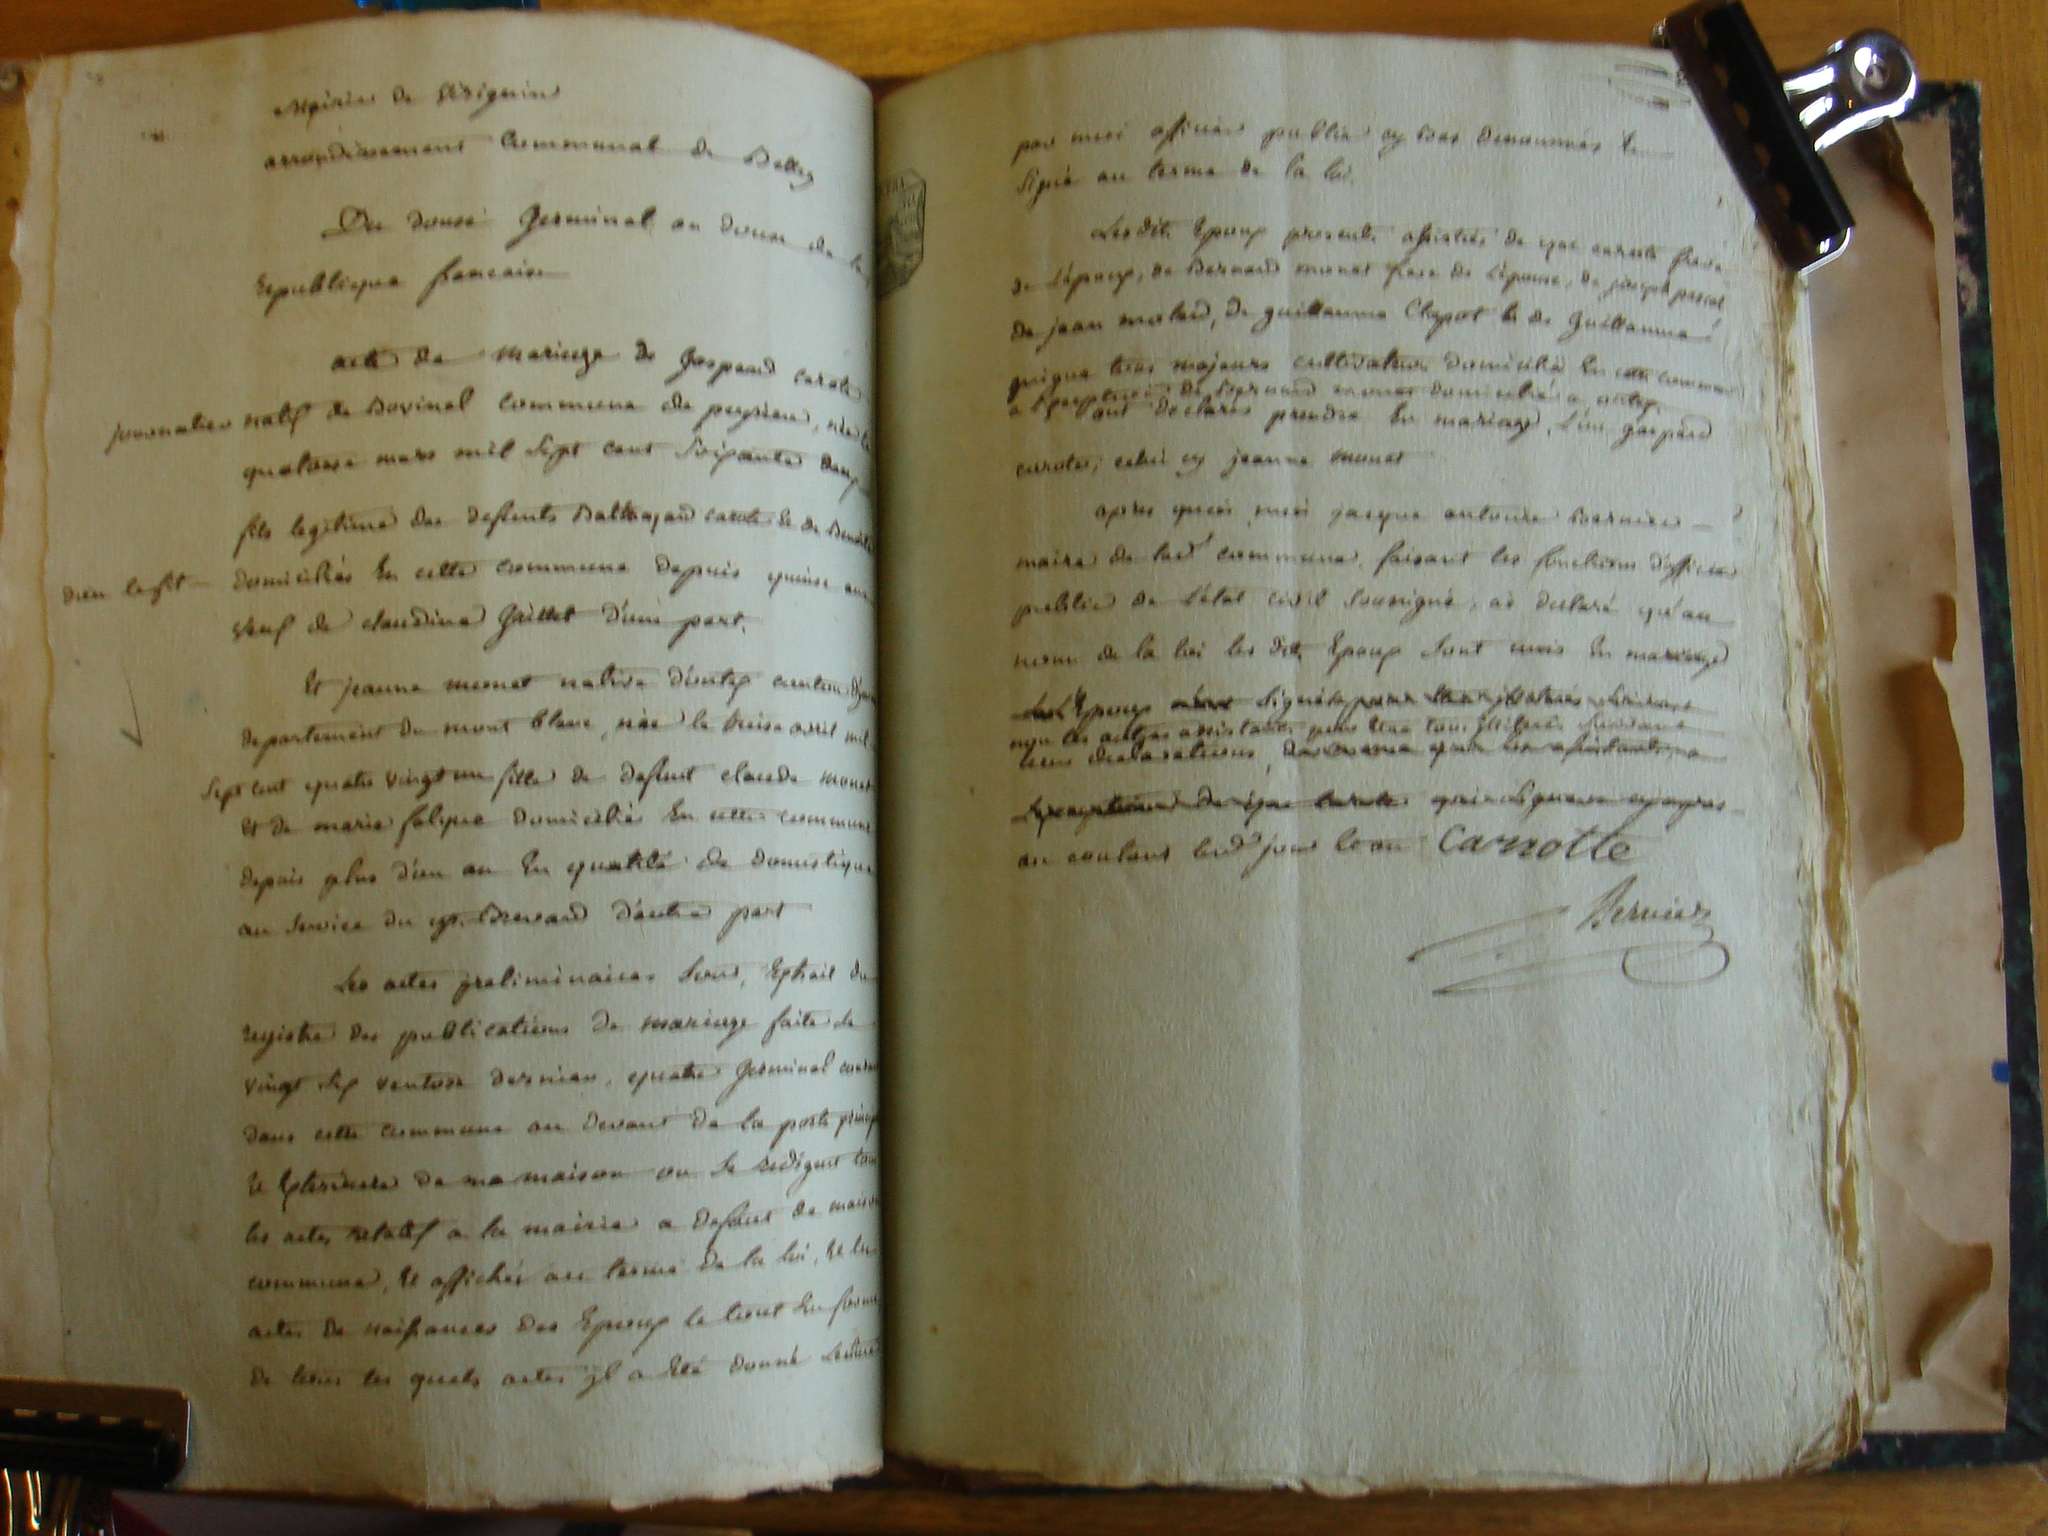 Mairie de
arrondissement Communal de Belley
Du douse Germinal an douse de la
Republique francaise
acte de mariage de Gaspard carote
journalier natif de Bovinel commune de peyrieu, née le
quatorse mars mil sept cent soixante deux
fils legitime des deffunts Baltazard carote et de Benoite
dieu le fit domiciliés En cette commune depuis quinse ans
veuf de claudine Guillet d'une part.
Et jeanne monet native d'ontex canton d'yenne
departement du mont blanc, née le treise avril mil
sept cent quatre vingt un fille de deffunt claude monet
Et de marie domiciliée En cette commune
depuis plus d'un an En qualité de domestique
au service du d'autre part
Les actes preliminaires sont, Extrait du
registre des publications de mariage faite le
vingt six ventose dernier, quatre Germinal courant
dans cette commune au devant de la porte
et Exterieure de ma maison ou se redigent tous
les actes relatif a la mairie a deffaut de maison
commune, Et affichés au terme de la loi, Et les
actes de naissances des Epoux le tout En forme
de tous les quels actes il a Eté donné Lecture
par moi officier public denommés
signé au terme de la loi.
Les dits Epoux presents assistés de carote frere
de L'époux, de Bernard monet frere de L'épouse, de joseph pascal
de jean molard, de guillaume Clapot & de Guillaume
tous majeurs cultivateurs domiciliés En cette commune
a L'exeption de Bernard monet domicilié a ontex.
ont declarés prendre En mariage, L'un gaspard
carote, celui cy jeanne monet
apres quoi moi jacque antoine Bernier
maire de lad.t commune, faisant les fonctions d'officier
public de L'état civil soussigné, ai declaré qu'au
nom de la loi les dits Epoux sont unis En mariage
Les Epoux signés
non les autres assistants pour Etre tous illiteré suivant
leurs declarations,
an courant led.t jour Et an Carrotte
Bernier